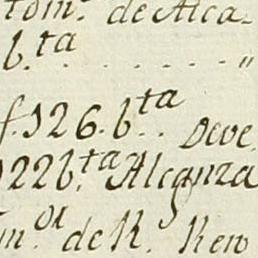 tom.º de Alca-
b.ta . . . . . . . "
f.126.b.ta.. Deve
122b.ta Alcanza
m.or de R.s Ren